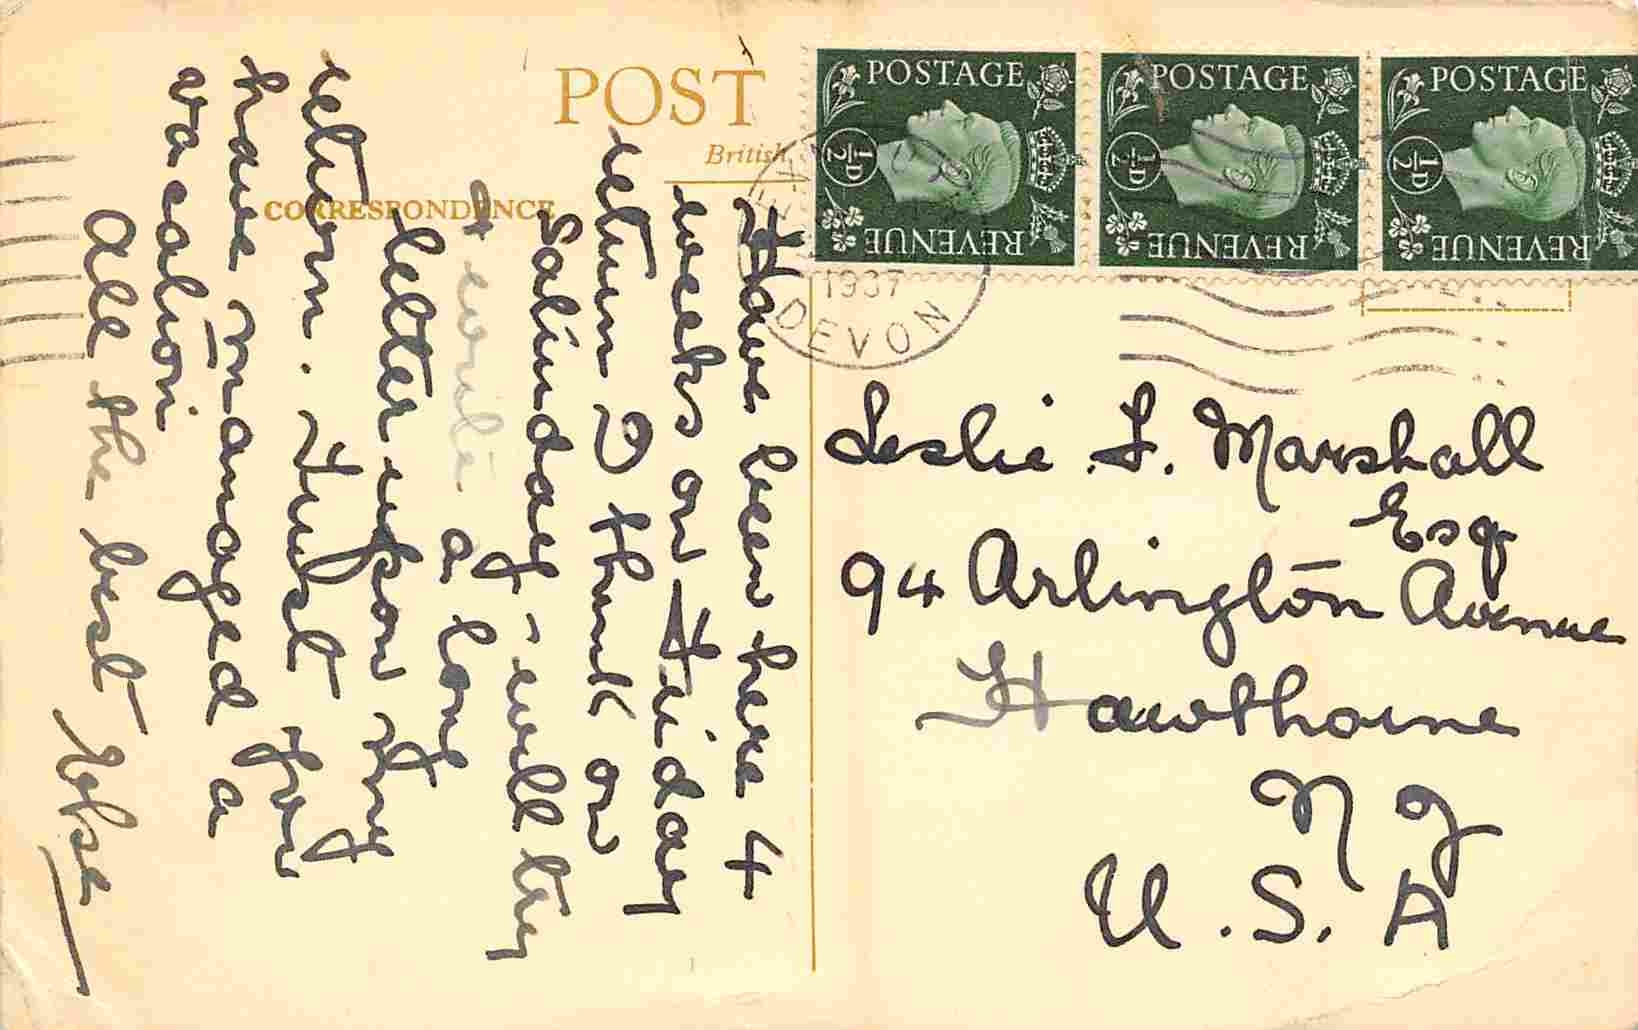 POST
British
CORRESPONDENCE
POSTAGE
REVENUE
½D
POSTAGE
REVENUE
½D
POSTAGE
REVENUE
½D
1937
DEVON
Have been here 4
weeks on Friday
return I think on
Saturday - will try
& write a long
letter upon my
return. Trust you
have managed a
vacation
All the best
Leslie F. Marshall
Esq
94 Arlington Avenue
Hawthorne
N J
U.S.A